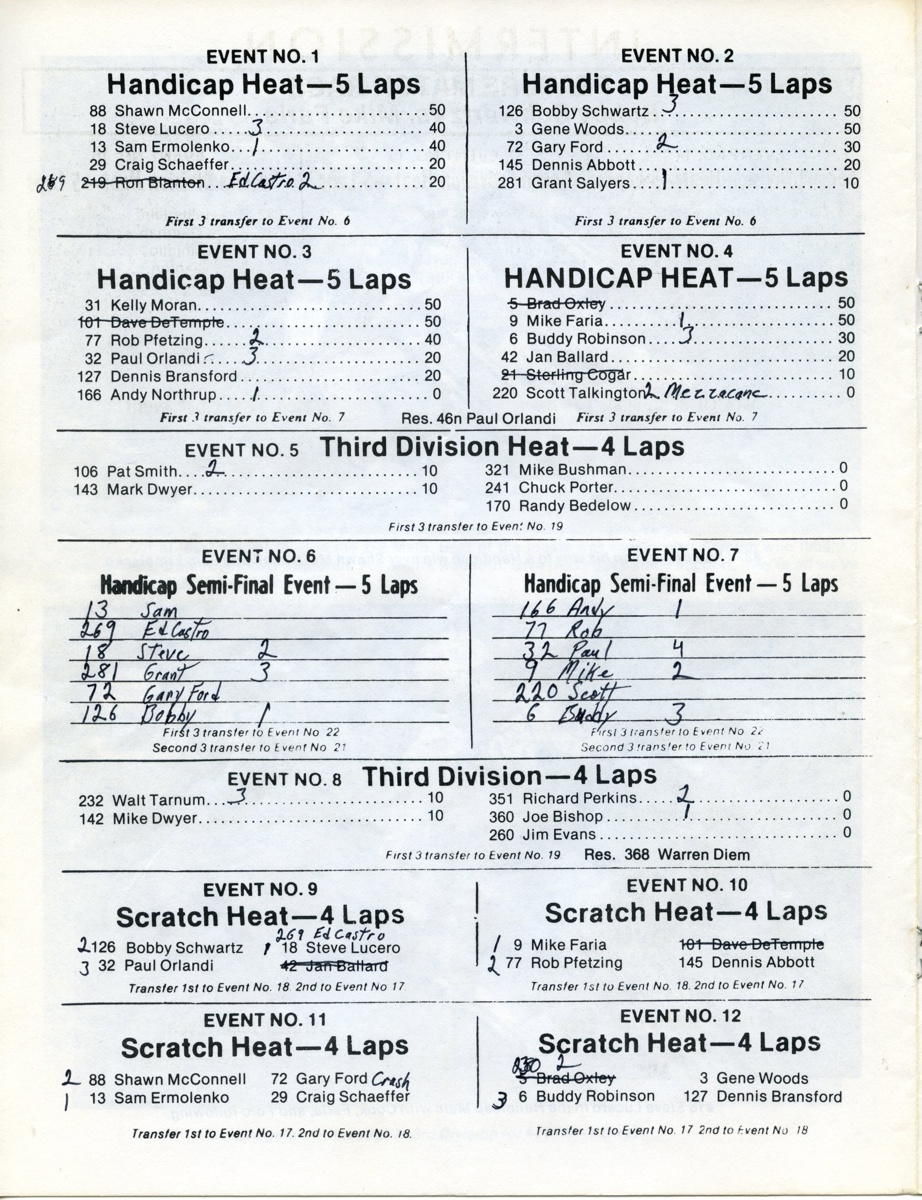 EVENT NO. 1
Handicap Heat—5 Laps
88 Shawn McConnell. 50
18 Steve Lucero 3 40
13 Sam Ermolenko 1 40
29 Craig Schaeffer 20
269 219 Ron Blanton Ed Castro 2 20
First 3 transfer to Event No. 6
EVENT NO. 2
Handicap Heat—5 Laps
126 Bobby Schwartz 3 50
3 Gene Woods 50
72 Gary Ford 2 30
145 Dennis Abbott 20
281 Grant Salyers 1 10
First 3 transfer to Event No. 6
EVENT NO. 3
Handicap Heat—5 Laps
31 Kelly Moran 50
101 Dave DeTemple 50
77 Rob Pfetzing 2 40
32 Paul Orlandi 3 20
127 Dennis Bransford 20
166 Andy Northrup 1 0
First 3 transfer to Event No. 7
EVENT NO. 4
HANDICAP HEAT—5 Laps
5 Brad Oxley 50
9 Mike Faria 1 50
6 Buddy Robinson 3 30
42 Jan Ballard 20
21 Sterling Cogar 10
220 Scott Talkington 2 0
Res. 46n Paul Orlandi First 3 transfer to Event No. 7
EVENT NO. 5 Third Division Heat—4 Laps
106 Pat Smith 2 10
143 Mark Dwyer 10
321 Mike Bushman 0
241 Chuck Porter 0
170 Randy Bedelow 0
First 3 transfer to Event No. 19
EVENT NO. 6
Handicap Semi-Final Event — 5 Laps
13 Sam
269 Ed Castro
18 Steve 2
281 Grant 3
72 Gary Ford
126 Bobby 1
First 3 transfer to Event No 22
Second 3 transfer to Event No. 21
EVENT NO. 7
Handicap Semi-Final Event — 5 Laps
166 Andy 1
77 Rob
32 Paul 4
9 Mike 2
220 Scott
6 Buddy 3
First 3 transfer to Event No 22
Second 3 transfer to Event No. 21
EVENT NO. 8 Third Division—4 Laps
232 Walt Tarnum 3 10
142 Mike Dwyer 10
351 Richard Perkins 2 0
360 Joe Bishop 1 0
260 Jim Evans 0
First 3 transfer to Event No. 19 Res. 368 Warren Diem
EVENT NO. 9
Scratch Heat—4 Laps
269 Ed Castro
2 126 Bobby Schwartz 1 18 Steve Lucero
3 32 Paul Orlandi 42 Jan Ballard
Transfer 1st to Event No. 18. 2nd to Event No 17.
EVENT NO. 10
Scratch Heat—4 Laps
1 9 Mike Faria 101 Dave DeTemple
2 77 Rob Pfetzing 145 Dennis Abbott
Transfer 1st to Event No. 18. 2nd to Event No. 17
EVENT NO. 11
Scratch Heat—4 Laps
2 88 Shawn McConnell 72 Gary Ford Crash
1 13 Sam Ermolenko 29 Craig Schaeffer
Transfer 1st to Event No. 17. 2nd to Event No. 18.
EVENT NO. 12
Scratch Heat—4 Laps
2
5 Brad Oxley 3 Gene Woods
3 6 Buddy Robinson 127 Dennis Bransford
Transfer 1st to Event No. 17 2nd to Event No 18